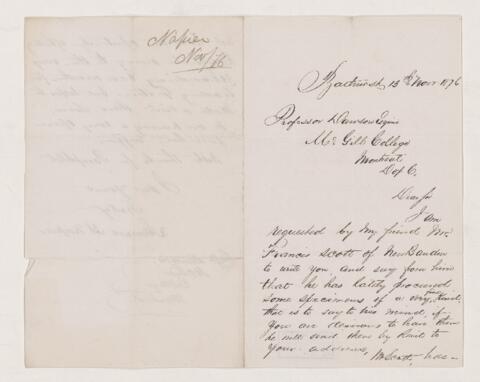 Napier
Nov/76
13th Nov 1876
Professor Dawson Esquire
Mc Gill College
Montreal
Dear Sir
I am
requested by my friend Mr
Francis Scott of New Bandon
to write you and say for him
that he has lately procured
some specimens of a very kind
that is to say to his mind, if
you are desirous to have them
he will send them by Rail to
your address, Mr Scott, has